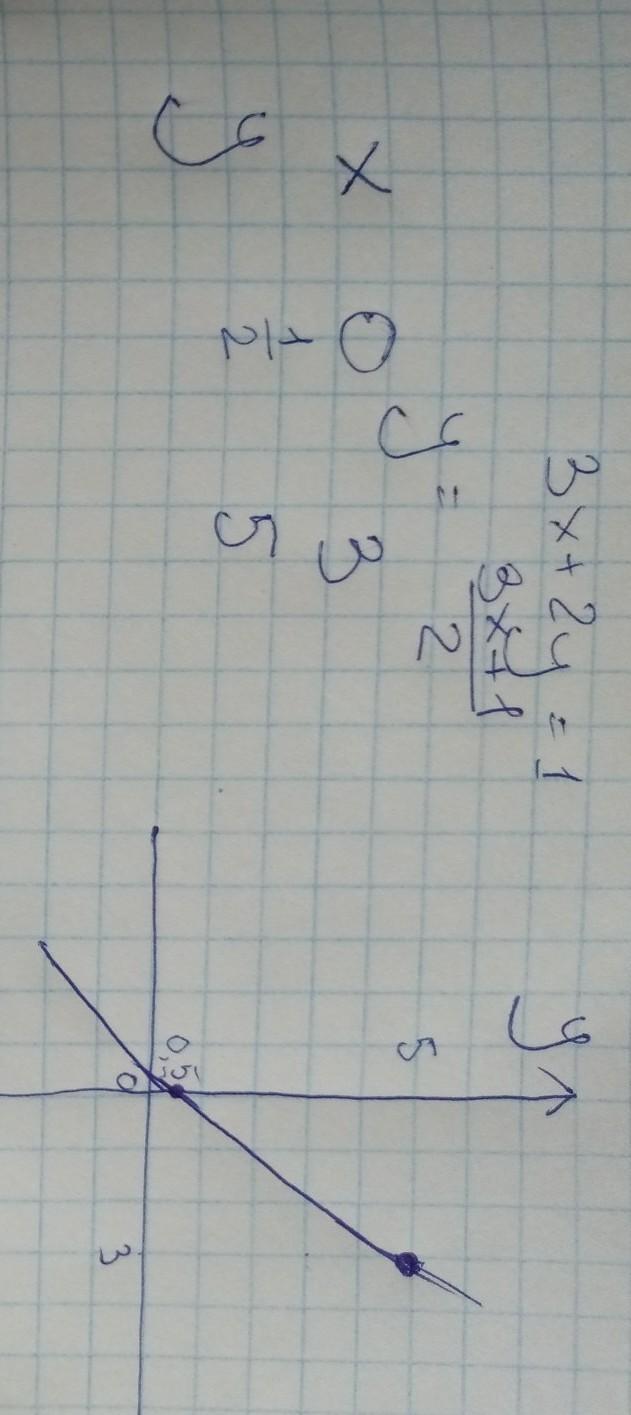 3x+2y=1
y=
3x+1
2
x 0 3
y 1/2 5
y
5
0,5
0
3